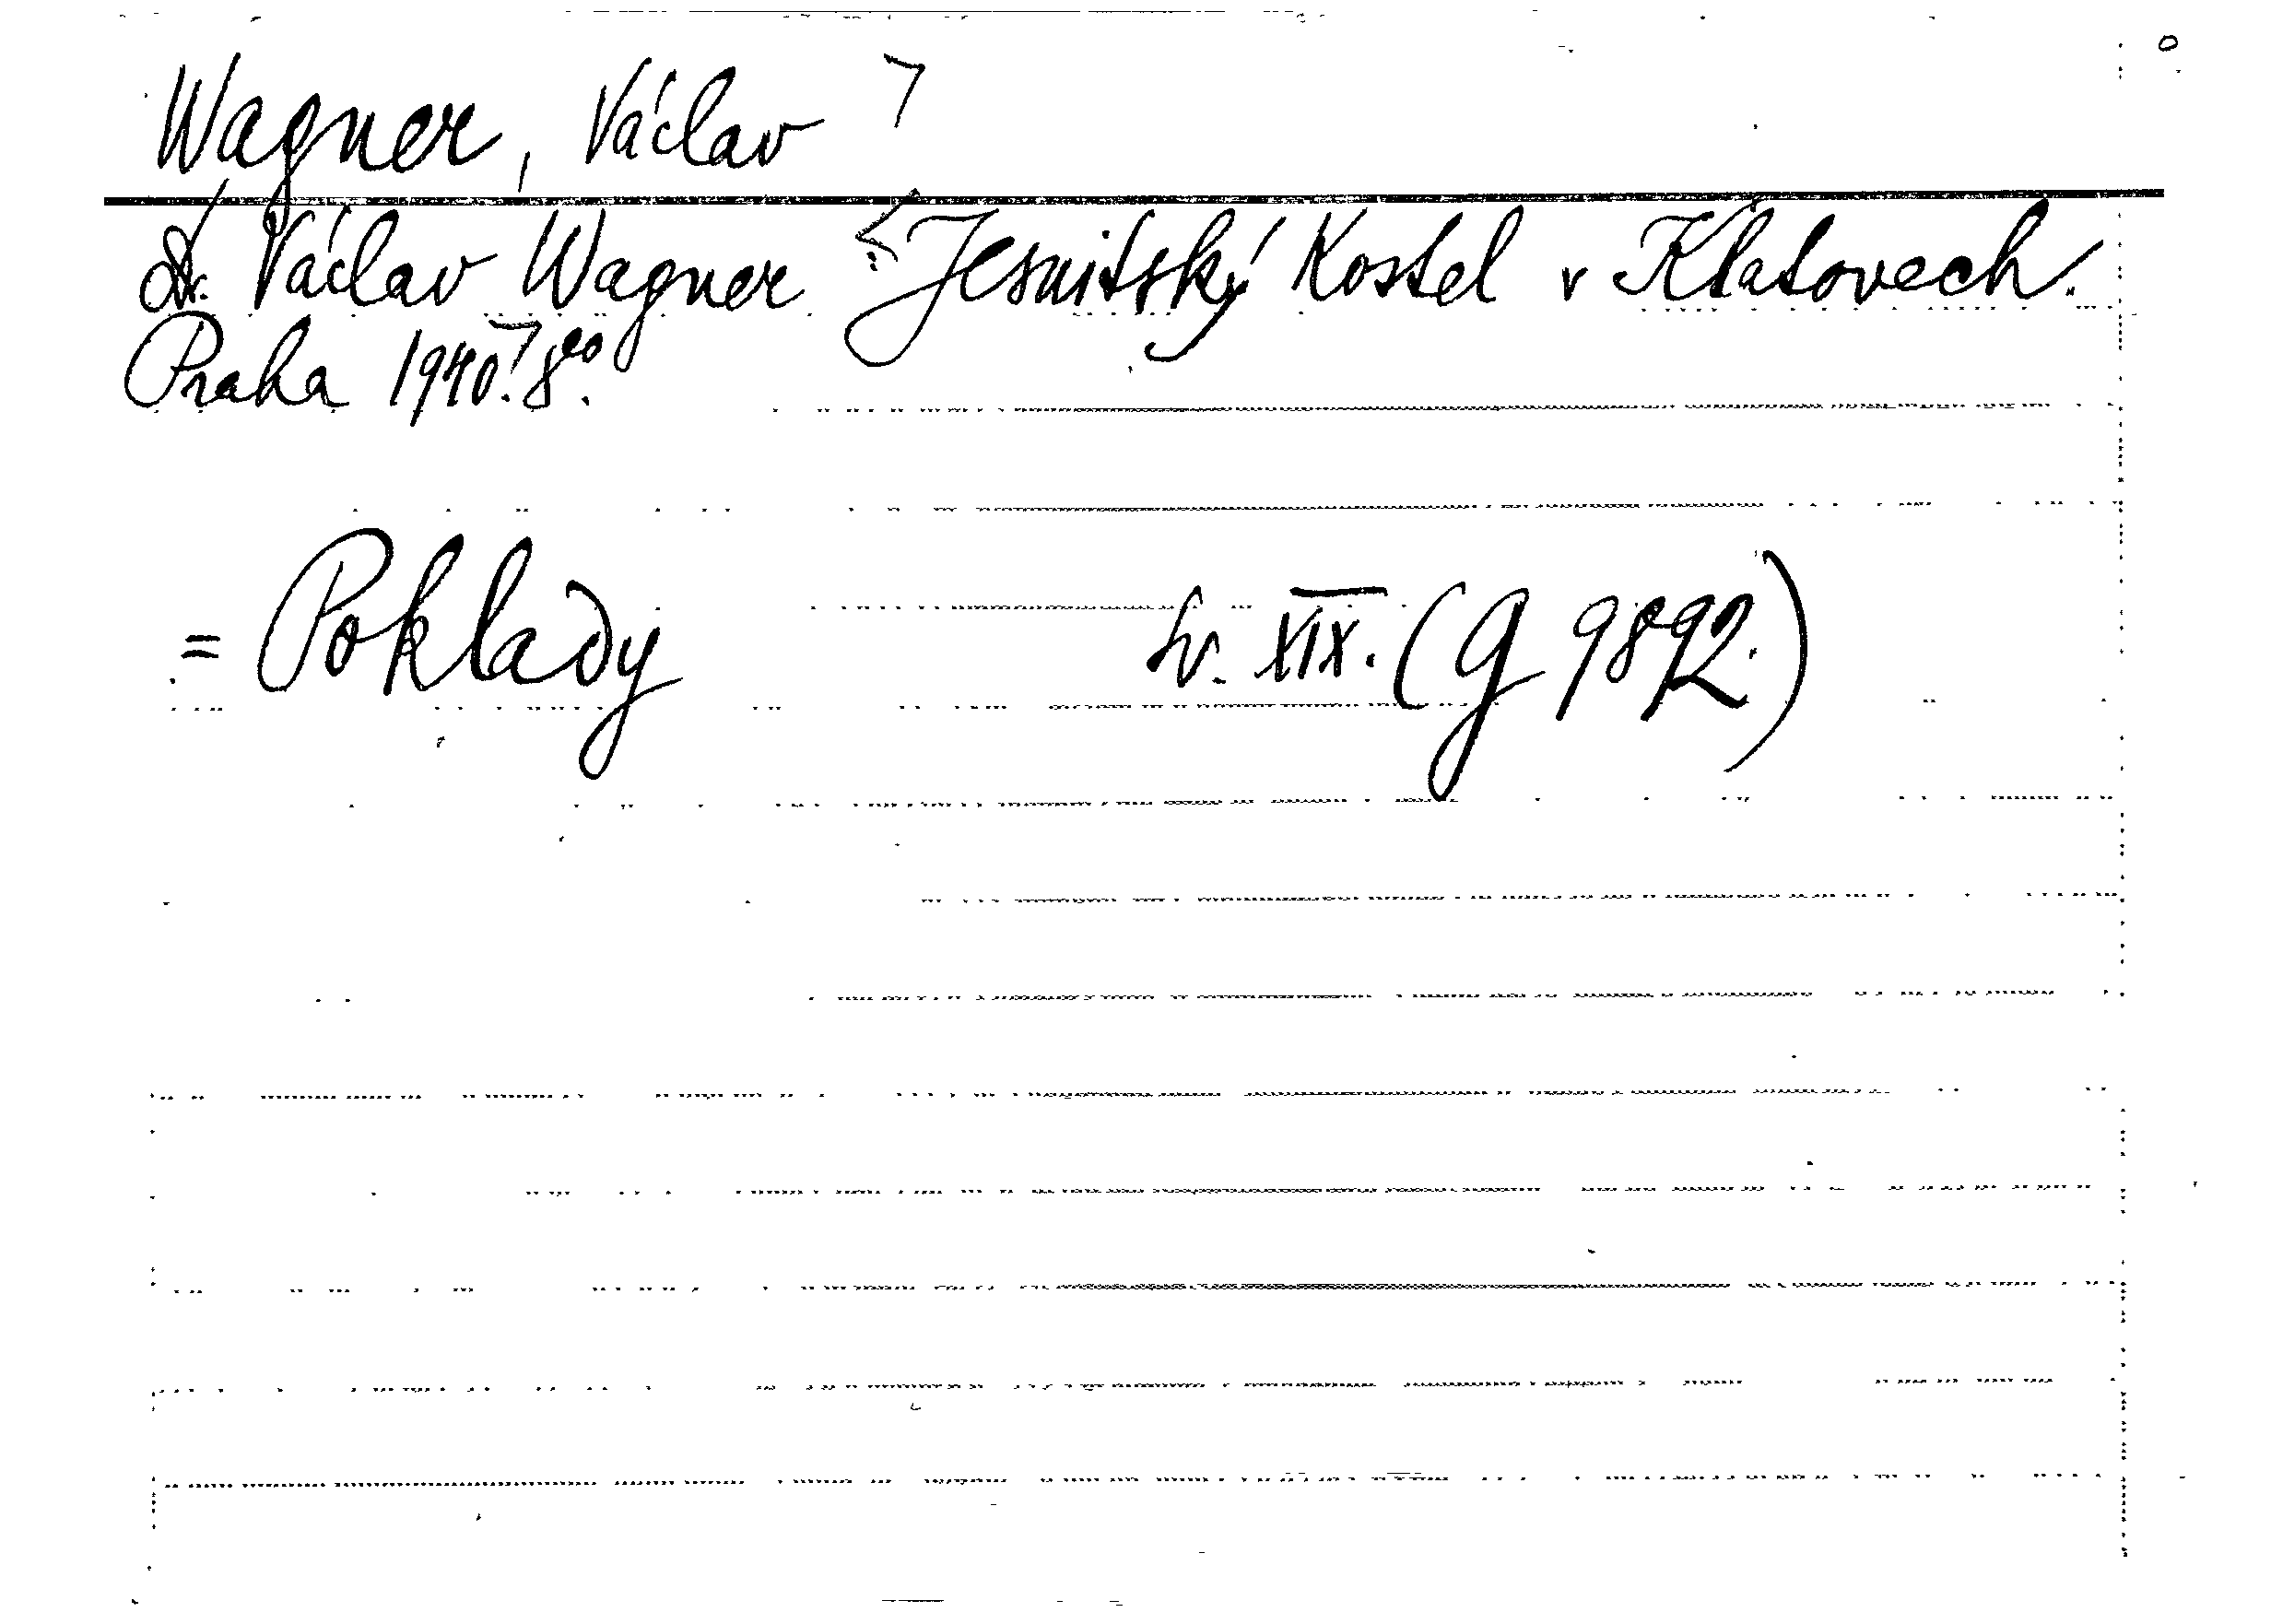 Wagner, Václav
Dr. Václav Wagner: Jesuitský Kostel v Klatovech.
Praha 1940. 8°.
= Poklady sv. XIX. (G 9892.)